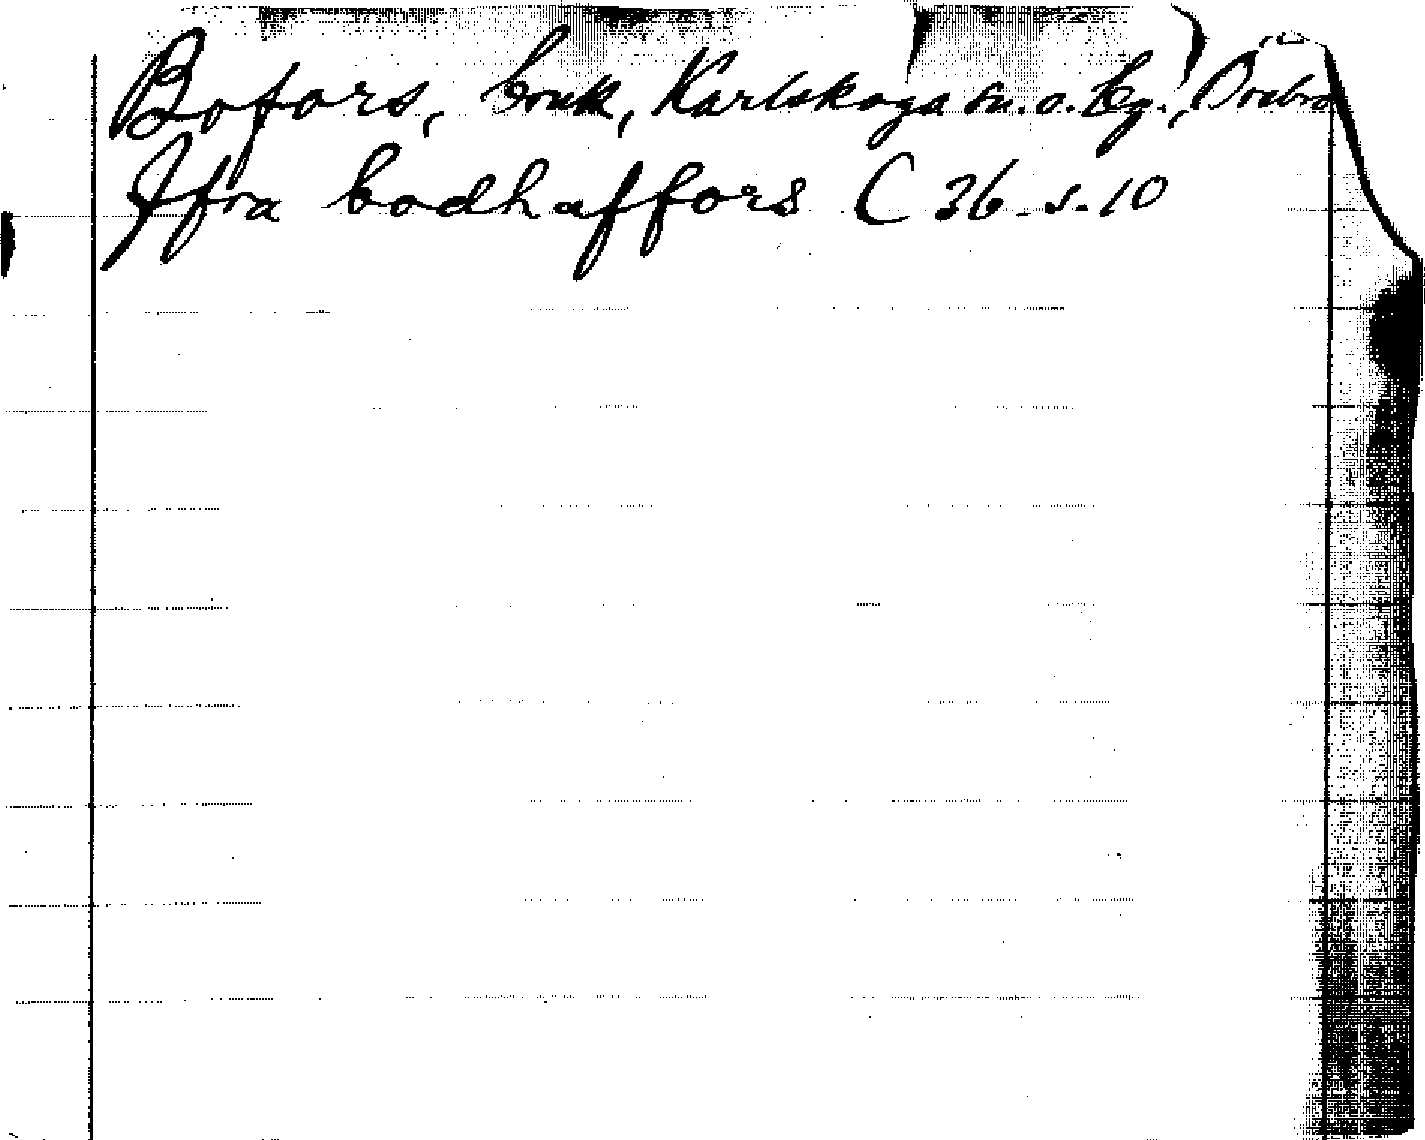 Bofors, bruk, Karlskoga sn. o. bg., Örebro
Jfra bodhaffors C 36 s. 10